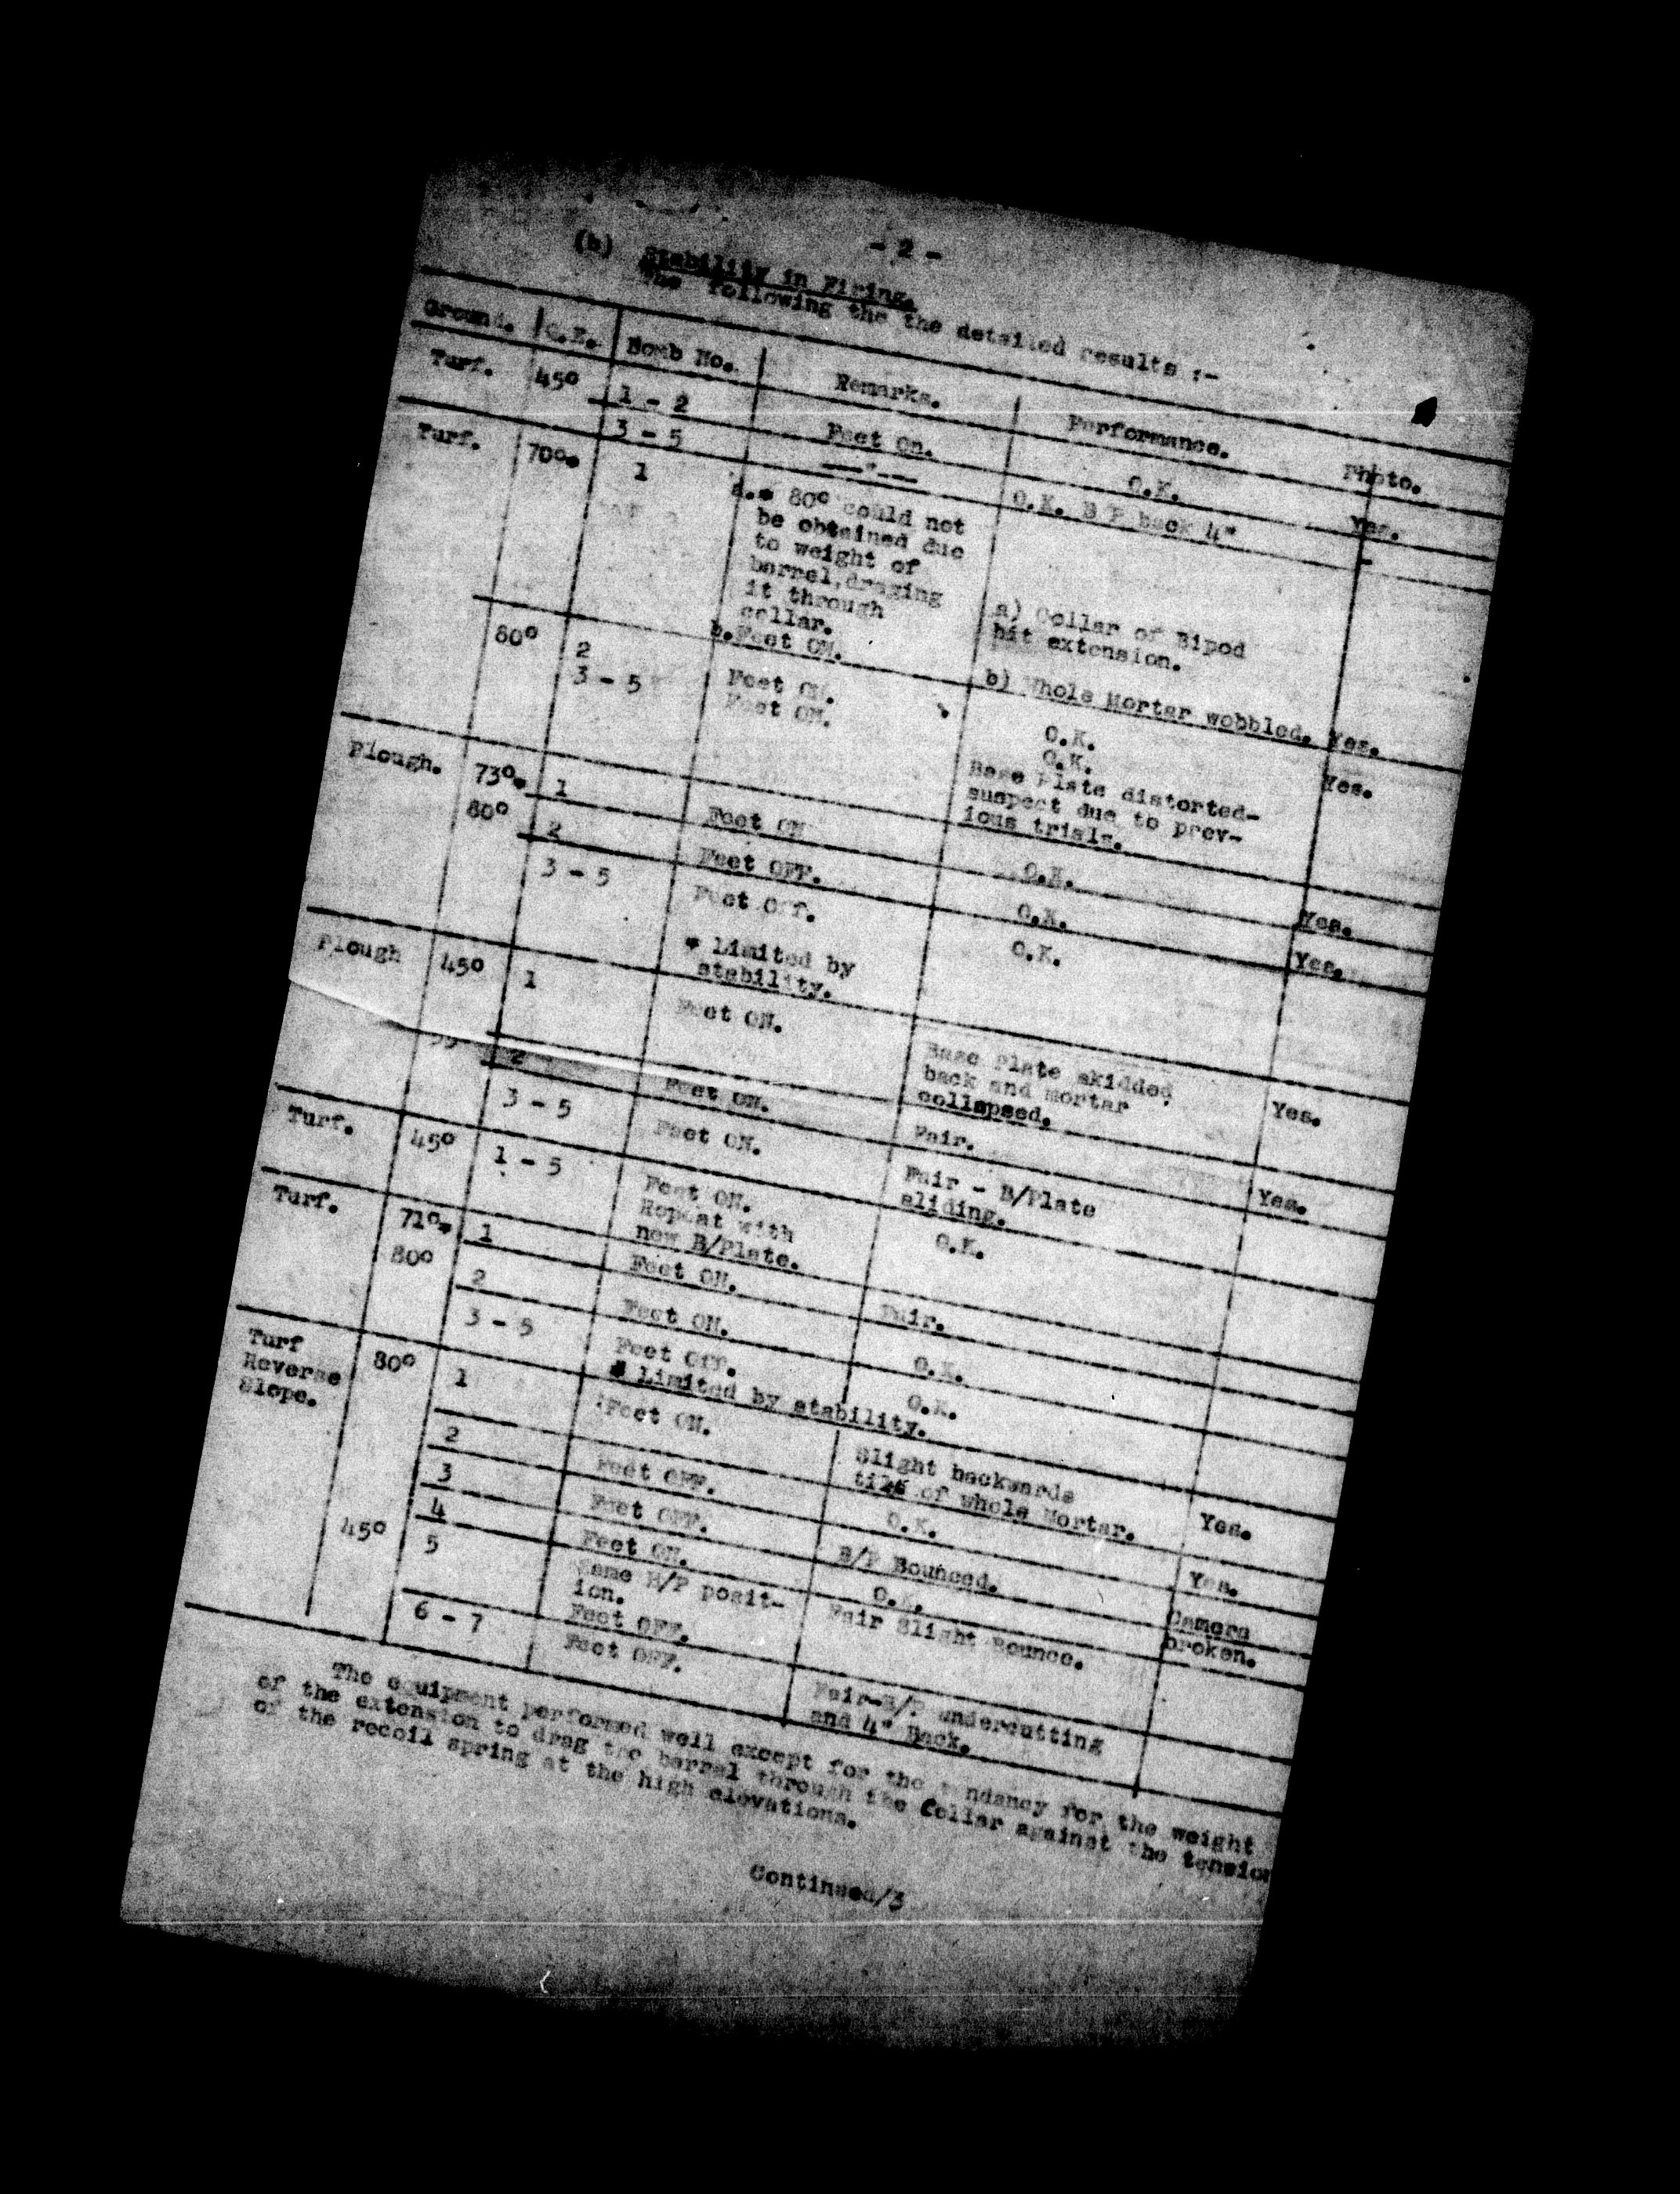 - 2 -
(b) Stability in Firing.
The following the the detailed results :-
Ground. Q.E. Bomb No. Remarks. Performance. Photo.
Turf. 45° 1 - 2 Feet On. O.K. Yes.
3 - 5 —"—— O.K. B P back 4" -
Turf. 70°* 1 a.* 80° could not
be obtained due
to weight of
barrel,draging
it through
collar. a) Collar of Bipod
hit extension.
b.Feet ON. b) Whole Mortar wobbled. Yes.
80° 2 Feet ON. O.K. Yes.
3 - 5 Feet ON. O.K.
Base Plate distorted-
suspect due to prev-
ious trials.
Plough. 73°* 1 Feet ON O.K. Yes.
80° 2 Feet OFF. O.K. Yes.
3 - 5 Feet Off. O.K.
* Limited by
stability.
Plough 45° 1 Feet ON. Base Plate skidded
back and mortar
collapsed. Yes.
2 Feet ON. Fair.
3 - 5 Feet ON. Fair - B/Plate
sliding. Yes.
Turf. 45° 1 - 5 Feet ON.
Repeat with
new B/Plate. O.K.
Turf. 71°* 1 Feet ON. Fair.
80° 2 Feet ON. O.K.
3 - 5 Feet Off. O.K.
* Limited by stability.
Turf
Reverse
Slope. 80° 1 Feet ON. Slight backwards
tilt of whole Mortar. Yes.
2 Feet OFF. O.K. Yes.
3 Feet OFF. B/P Bounced. Camera
broken.
4 Feet ON. O.K.
45° 5 Same B/P posit-
ion.
Feet OFF. Fair Slight Bounce.
6 - 7 Feet OFF. Fair-B/P. undercutting
and 4" Back.
The equipment performed well except for the tendancy for the weight
of the extension to drag the barrel through the Collar against the tension
of the recoil spring at the high elevations.
Continued/3